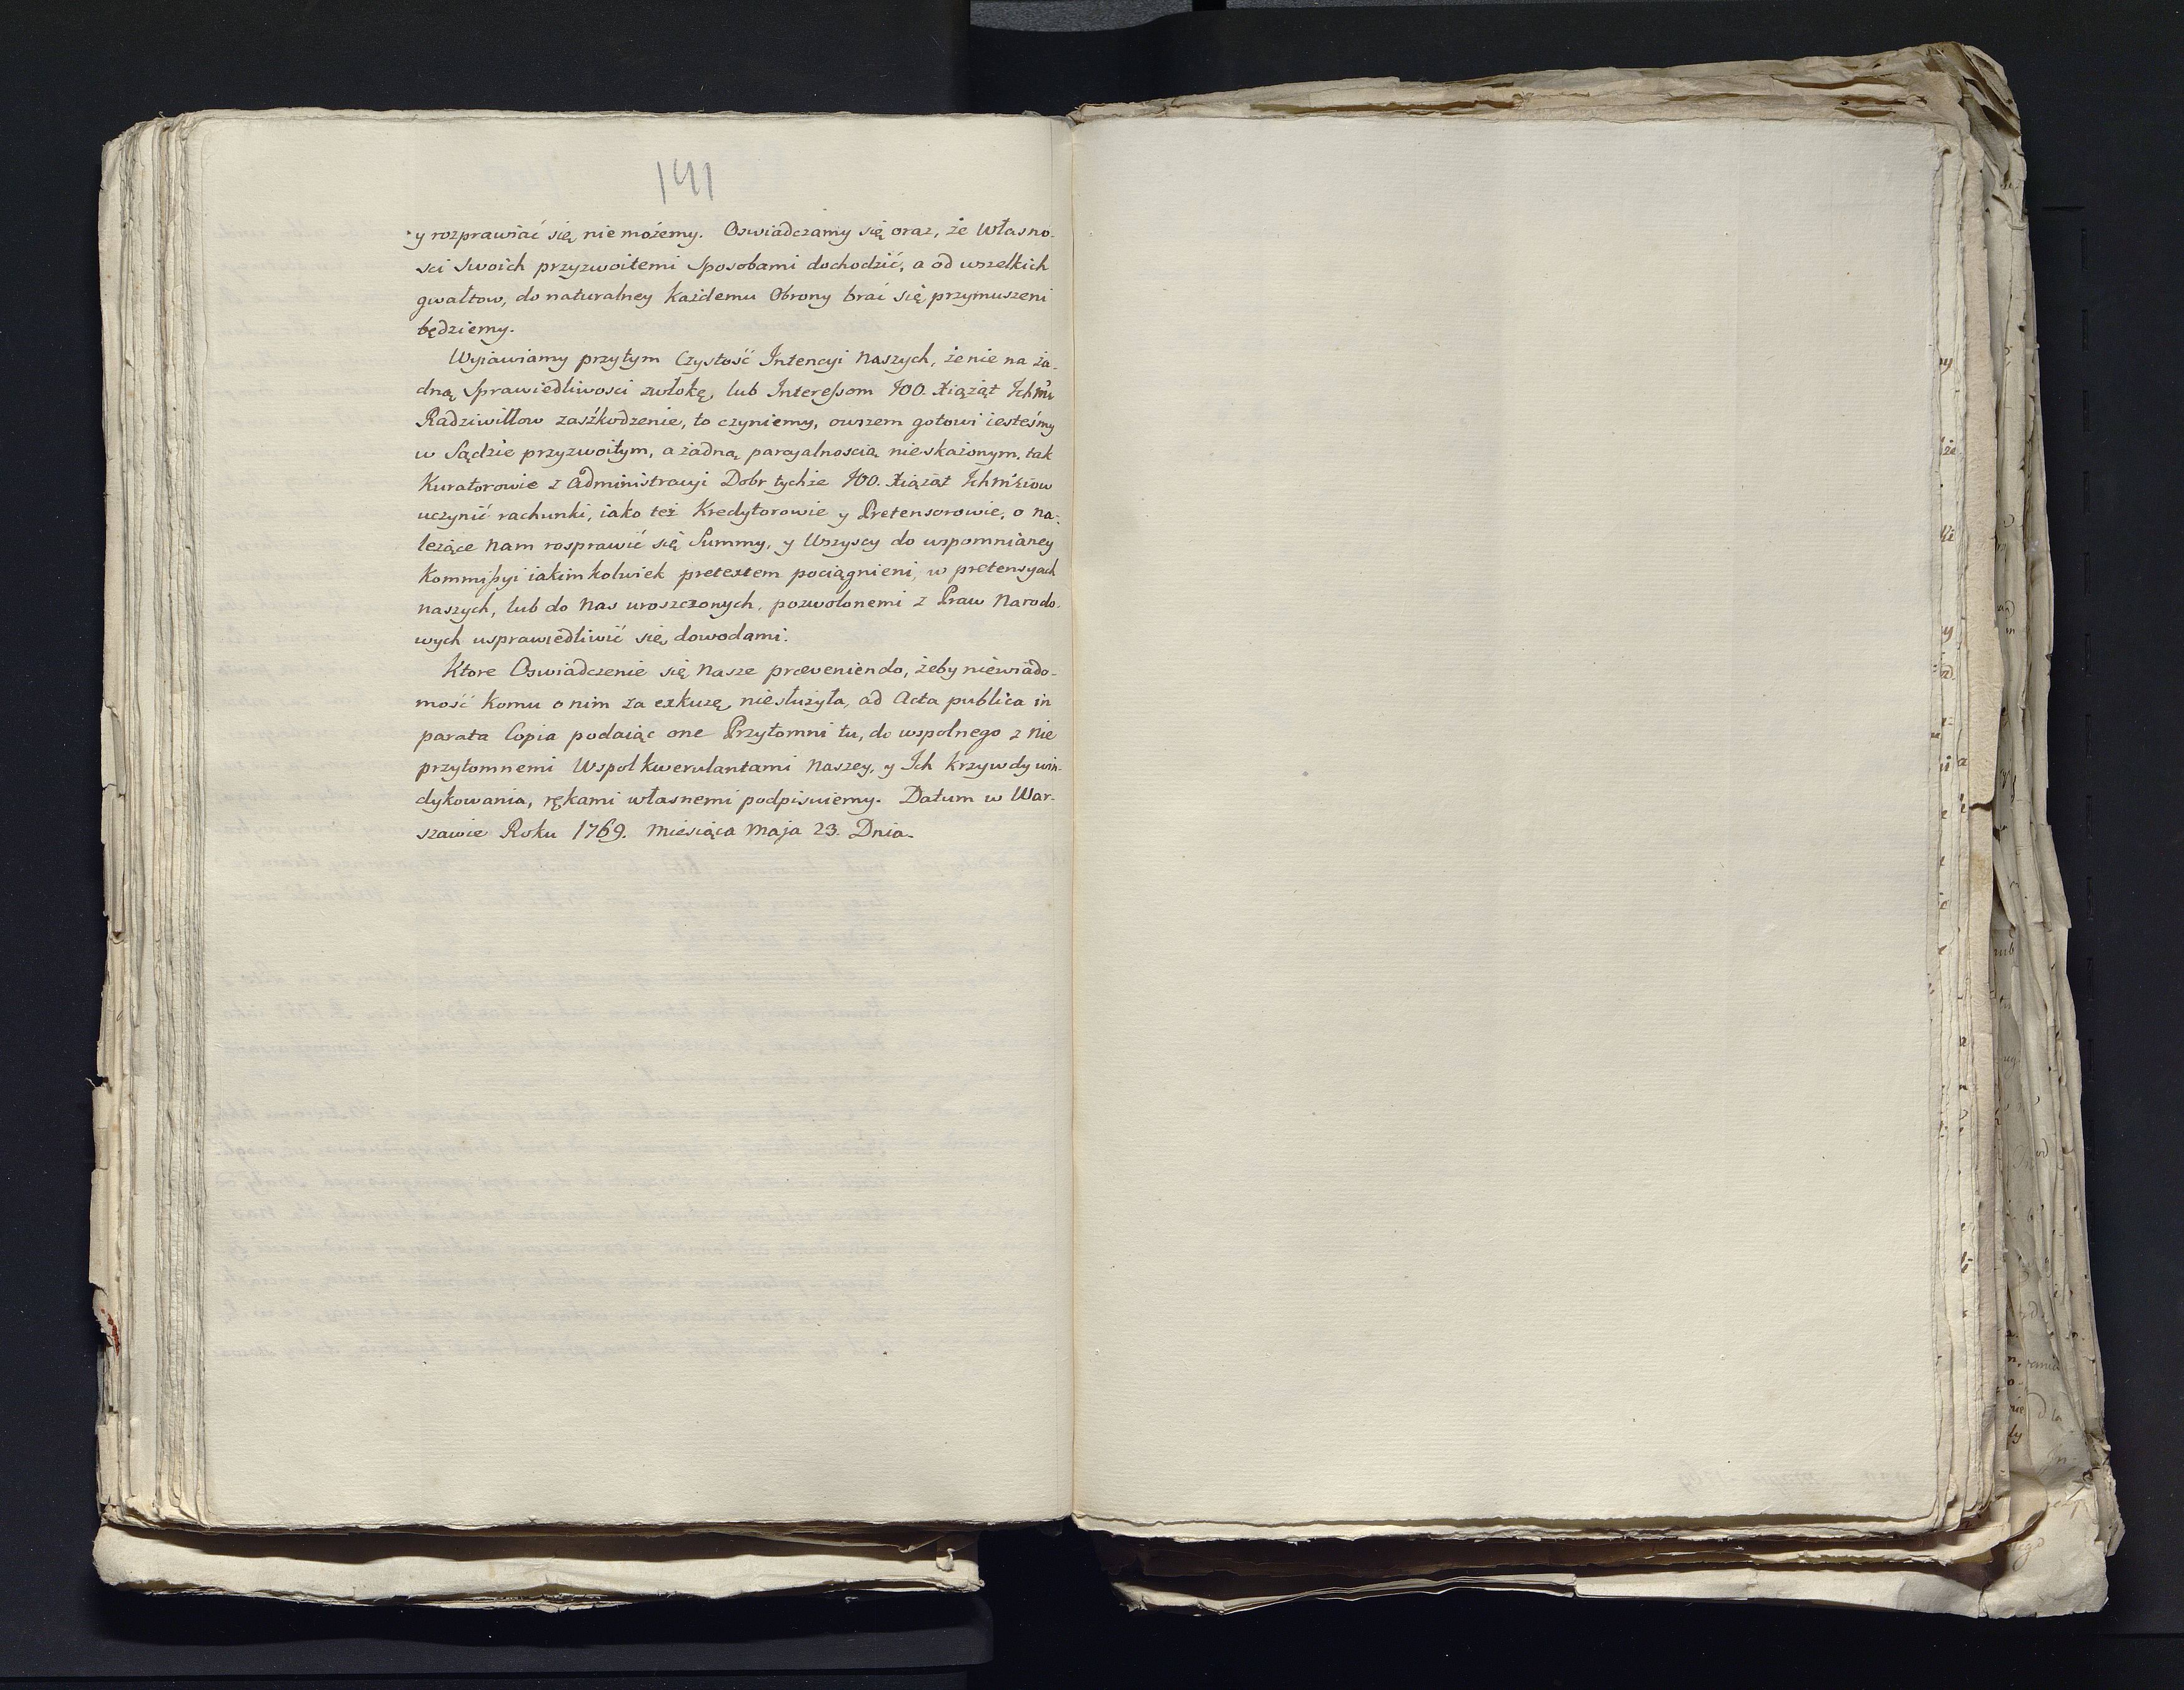 141
y rozprawiać się nie możemy. Oswiadczamy się oraz, że Własno-
sci Swoich przyzwoitemi Sposobami dochodzić, a od wszelkich
gwałtow, do naturalney każdemu Obrony brać się przymuszeni
będziemy.
Wyiawiamy przytym Czystość Intencyi Naszych, że nie na ża-
dną Sprawiedliwosci zwłokę, lub Interessom JOO. Xiążąt Ichmw
Radziwiłłow zaszkodzenie, to czyniemy, owszem gotowi iesteśmy
w Sądzie przyzwoitym, a żadną parcyalnoscią nieskażonym, tak
Kuratorowie z Administracyi Dobr tychże JOO. Xiążąt Ichmściow
uczynić rachunki, iako też Kredytorowie y Pretensorowie, o na-
leżące Nam rosprawić się Summy, y Wszyscy do wspomnianey
Kommissyi iakimkolwiek pretextem pociągnieni, w pretensyach
naszych, lub do Nas uroszczonych, pozwolonemi z Praw Narodo-
wych usprawiedliwić się dowodami.
Ktore Oswiadczenie się Nasze præveniendo, żeby niewiado-
mość komu o nim za exkuzę niesłużyła, ad Acta publica in
parata Copia podaiąc one Przytomni tu, do wspolnego z Nie
przytomnemi Wspolkwerulantami Naszey, y Ich Krzywdy win-
dykowania, rękami własnemi podpisuiemy. Datum w War-
szawie Roku 1769. Miesiąca Maja 23. Dnia.